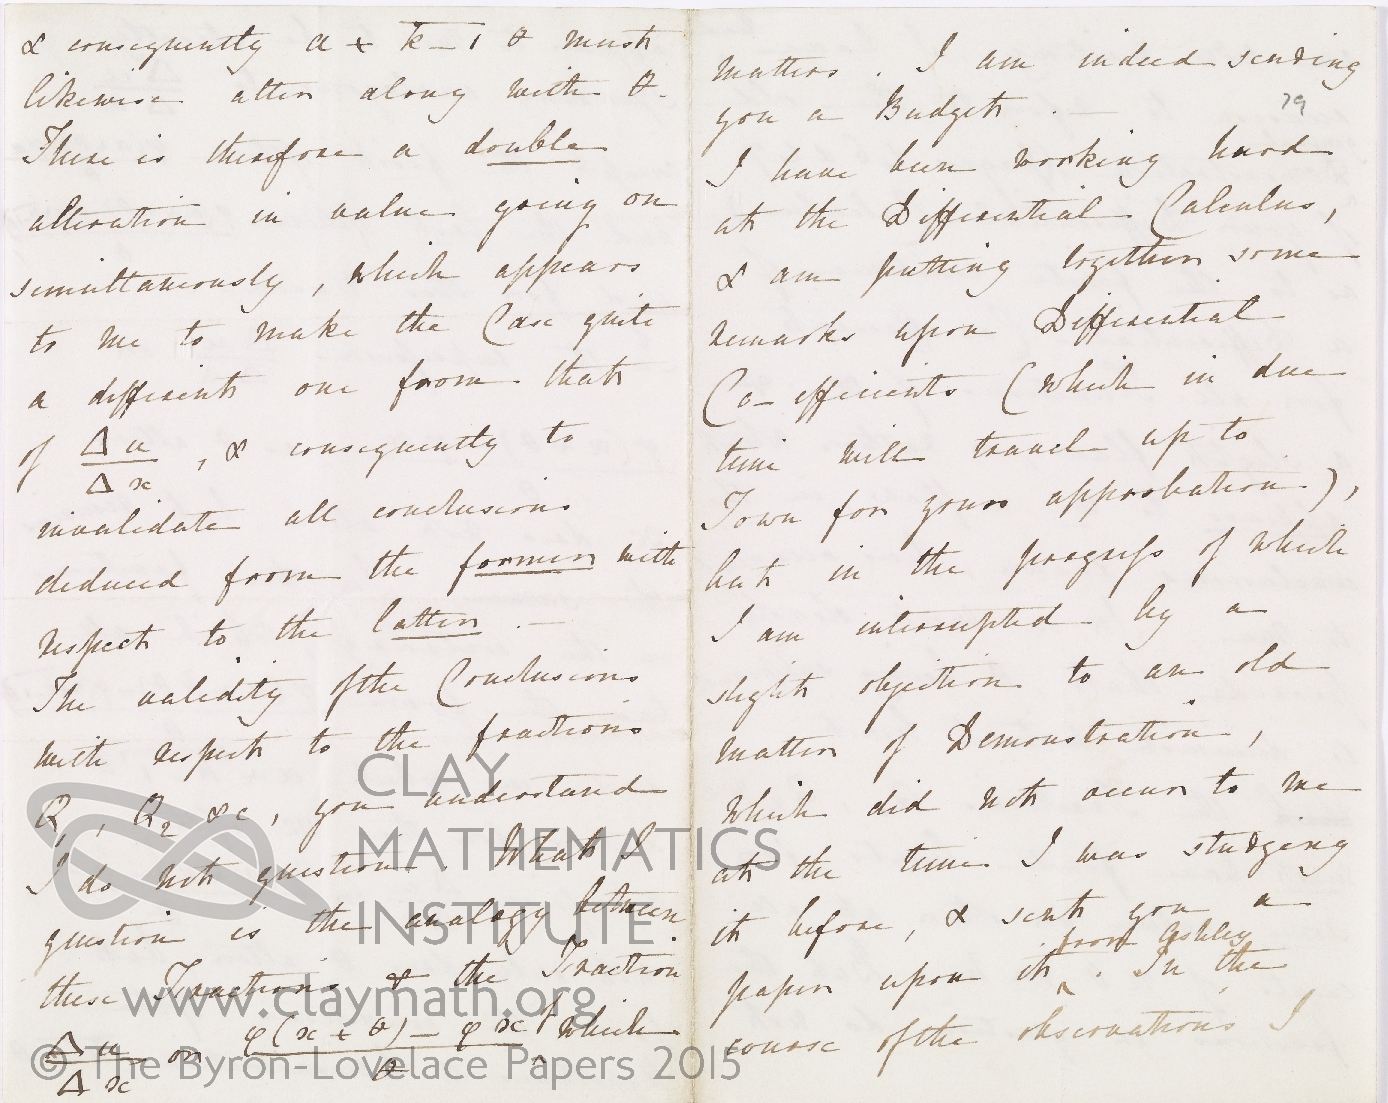 & consequently a + k-1 θ must
likewise alter along with θ.
There is therefore a double
alteration in value going on
simultaneously, which appears
to me to make the Case quite
a different one from that
of Δu/Δx, & consequently to
invalidate all conclusions
deduced from the former with
respect to the latter. —
The validity of the Conclusions
with respect to the fractions
Q₁, Q₂ &c, you understand
I do not question. What I
question is the analogy between
these Fractions & the Fraction
Δu/Δx or φ(x + θ) - φx/θ of which
matters. I am indeed sending
you a Budget. —
79
I have been working hard
at the Differential Calculus,
& am putting together some
remarks upon Differential
Co-efficients (which in due
time will travel up to
Town for your approbation),
but in the progress of which
I am interrupted by a
slight objection to an old
matter of Demonstration,
which did not occur to me
at the time I was studying
it before, & sent you a
paper upon it from Ashley. In the
course of the observations I
CLAY
MATHEMATICS
INSTITUTE
www.claymath.org
© The Byron-Lovelace Papers 2015